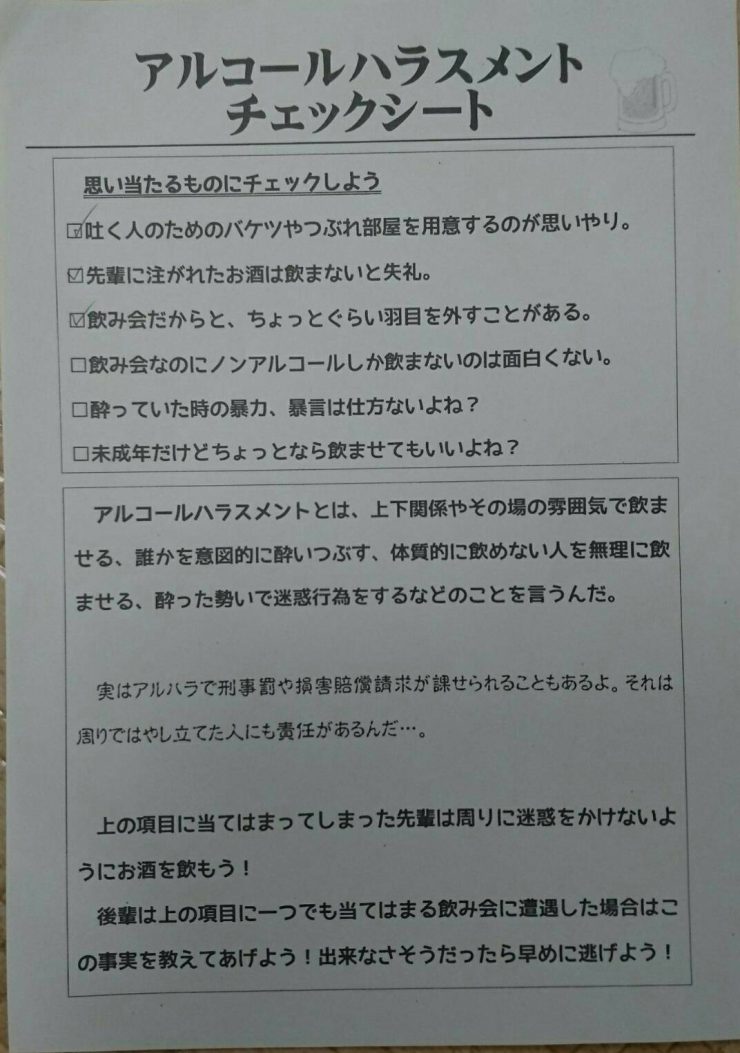 アルコールハラスメント
チェックシート
思い当たるものにチェックしよう
☑吐く人のためのバケツやつぶれ部屋を用意するのが思いやり。
☑先輩に注がれたお酒は飲まないと失礼。
☑飲み会だからと、ちょっとぐらい羽目を外すことがある。
☐飲み会なのにノンアルコールしか飲まないのは面白くない。
☐酔っていた時の暴力、暴言は仕方ないよね？
☐未成年だけどちょっとなら飲ませてもいいよね？
アルコールハラスメントとは、上下関係やその場の雰囲気で飲ま
せる、誰かを意図的に酔いつぶす、体質的に飲めない人を無理に飲
ませる、酔った勢いで迷惑行為をするなどのことを言うんだ。
実はアルハラで刑事罰や損害賠償請求が課せられることもあるよ。それは
周りではやし立てた人にも責任があるんだ…。
上の項目に当てはまってしまった先輩は周りに迷惑をかけないよ
うにお酒を飲もう！
後輩は上の項目に一つでも当てはまる飲み会に遭遇した場合はこ
の事実を教えてあげよう！出来なさそうだったら早めに逃げよう！